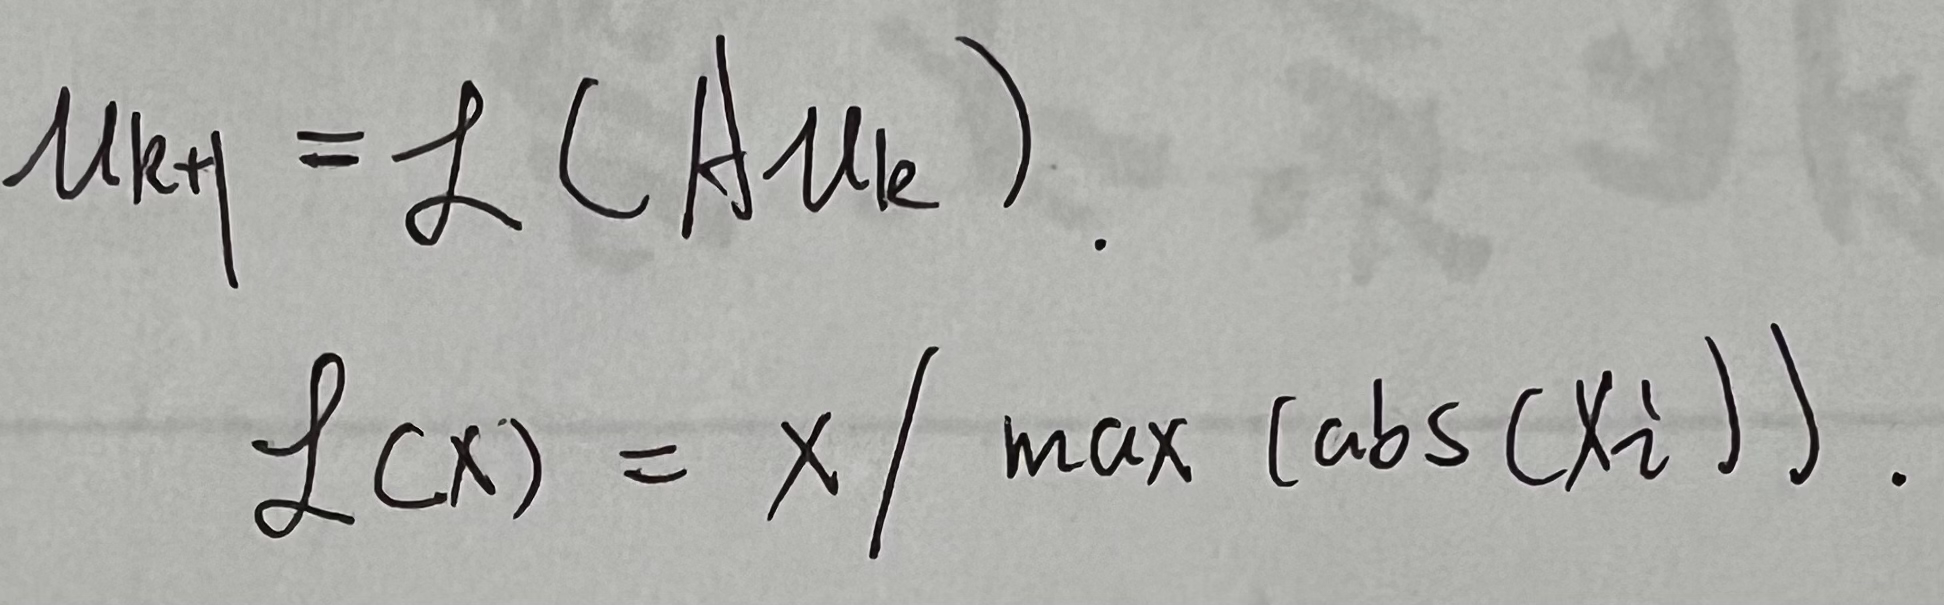 u_{k+1} = ℒ(Au_k).
ℒ(x) = x / max(abs(x_i)).